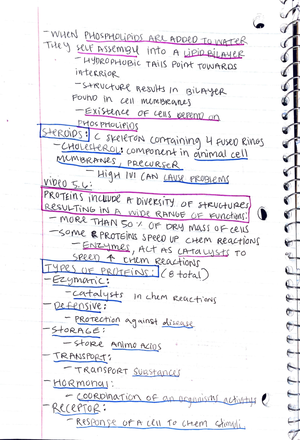 - WHEN PHOSPHOLIPIDS ARE ADDED TO WATER
THEY SELF ASSEMBLY INTO A LIPID BILAYER
- HYDROPHOBIC TAILS POINT TOWARDS
INTERRIOR
- STRUCTURE RESULTS IN BILAYER
FOUND IN CELL MEMBRANES
- EXISTENCE OF CELLS DEPEND ON
PHOSPHOLIPIDS
STEROIDS: C SKELETON CONTAINING 4 FUSED RINGS
- CHOLESTEROL: COMPONENT IN ANIMAL CELL
MEMBRANES, PRECURSER
- HIGH lVl CAN CAUSE PROBLEMS
VIDEO 5.6:
PROTEINS INCLUDE A DIVERSITY OF STRUCTURES,
RESULTING IN A WIDE RANGE OF FUNCTIONS:
- MORE THAN 50% OF DRY MASS OF CELLS
- SOME PROTEINS SPEED UP CHEM REACTIONS
- ENZYMES, ACT AS CATALYSTS TO
SPEED ↑ CHEM REACTIONS
TYPES OF PROTEINS: (8 total)
- ENZYMATIC:
- CATALYSTS in chem reactions
- DEFENSIVE:
- PROTECTION against disease
- STORAGE:
- STORE AMINO ACIDS
- TRANSPORT:
- TRANSPORT SUBSTANCES
- HORMONAL:
- COORDINATION OF AN ORGANISMS ACTIVITIES
- RECEPTOR:
- RESPONSE OF A CELL TO CHEM STIMULI